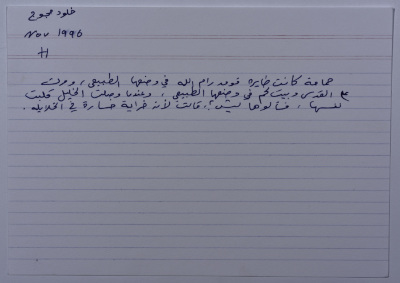 خلود محجوج
Nov 1996
H
حمامة كانت طايرة فوق رام الله في وضعها الطبيعي، ومرت
ع القدس وبيت لحم في وضعها الطبيعي، وعندما وصلت الخليل قلبت
نفسها، فسألوها ليش؟ قالت لأنه خراية خسارة في الخلايله.